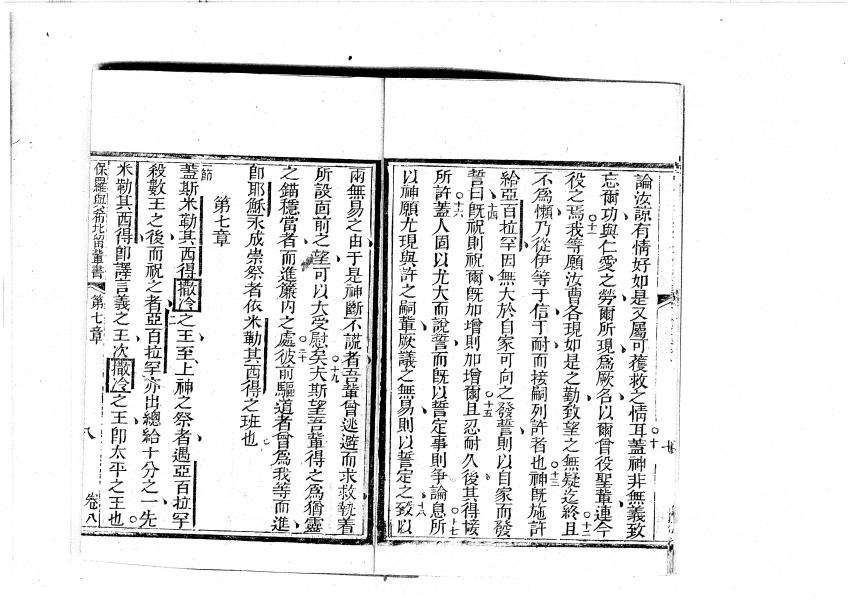 諭汝諒有情好如是又屬可獲救之情耳蓋神非無義致
忘爾功與仁愛之勞爾所現為厥名以爾曾役聖輩連今
役之焉我等願汝曹各現如是之勤致望之無疑迄終且
不為懶乃從伊等于信于耐而接嗣列許者也神既施許
給亞百拉罕因無大於自家可向之發誓則以自家而發
誓曰既祝則祝爾既加增則加增爾且忍耐久後其得接
所許蓋人固以尤大而說誓而既以誓定事則爭論息所
以神願尤現與許之嗣輩厥議之無易則以誓定之致以
兩無易之由于是神斷不謊者吾輩曾逃避而求救執着
所設面前之望可以大受慰矣夫斯望吾輩得之為猶靈
之錨穩當者而進簾內之處彼前驅道者曾為我等而進
即耶穌永成崇祭者依米勒其西得之班也
第七章
節
蓋斯米勒其西得撒冷之王至上神之祭者遇亞百拉罕
殺數王之後而祝之者亞百拉罕亦出總給十分之一先
米勒其西得即譯言義之王次撒冷之王即太平之王也
保羅與希比留輩書 第七章 八 卷八
十
十一
十二
十三
十四
十五
十六
十七
十八
十九
二十
二